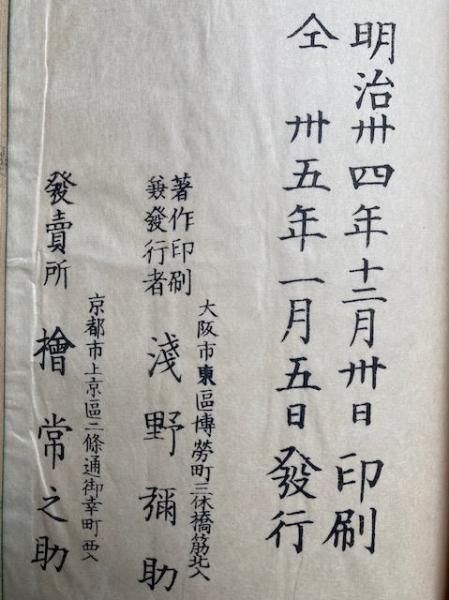 明治卅四年十二月卅日印刷
仝卅五年一月五日發行
大阪市東區博勞町三休橋筋北入
著作印刷
兼發行者
淺野彌助
京都市上京區二條通御幸町西入
發賣所 檜常之助